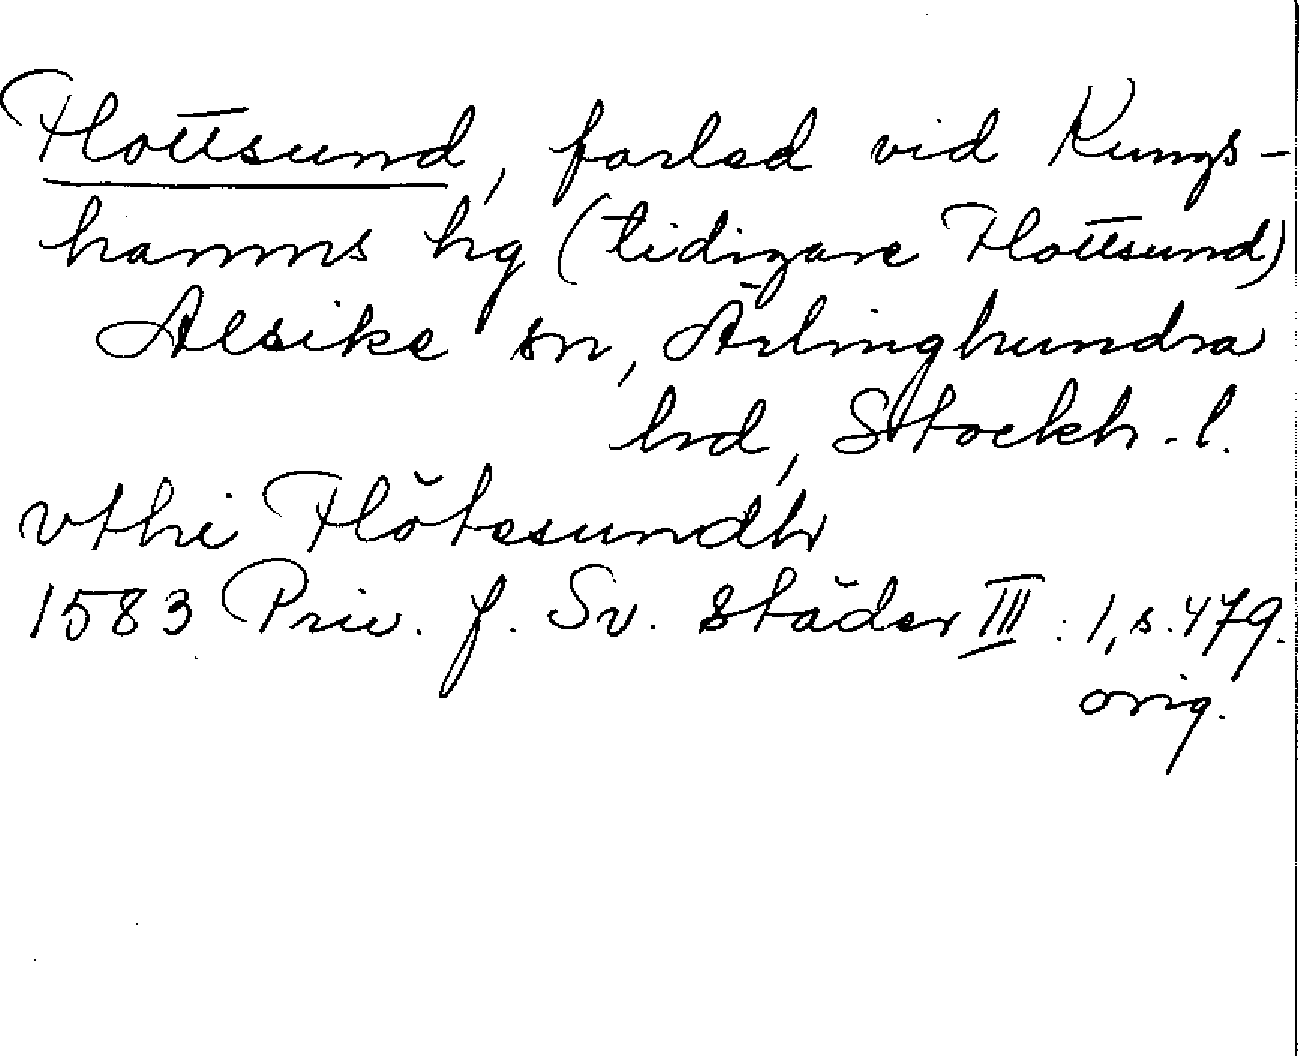 Flottsund, farled vid Kungs-
hamns hg (tidigare Flottsund)
Alsike sn, Ärlinghundra
hd, Stockh. l.
vthi Flötesundh
1583 Priv. f. Sv. städer III: 1, s. 479.
orig.